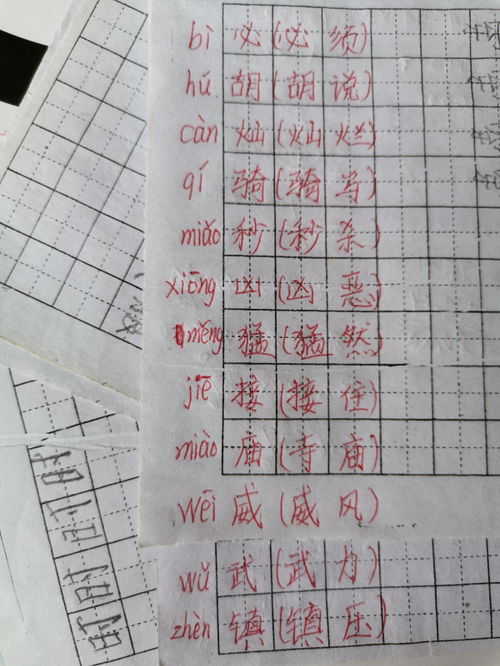 bì 必(必须)
hú 胡(胡说)
càn 灿(灿烂)
qí 骑(骑马)
miǎo 秒(秒杀)
xiōng 凶(凶恶)
měng 猛(猛然)
jiē 接(接住)
miào 庙(寺庙)
wēi 威(威风)
wǔ 武(武力)
zhèn 镇(镇压)